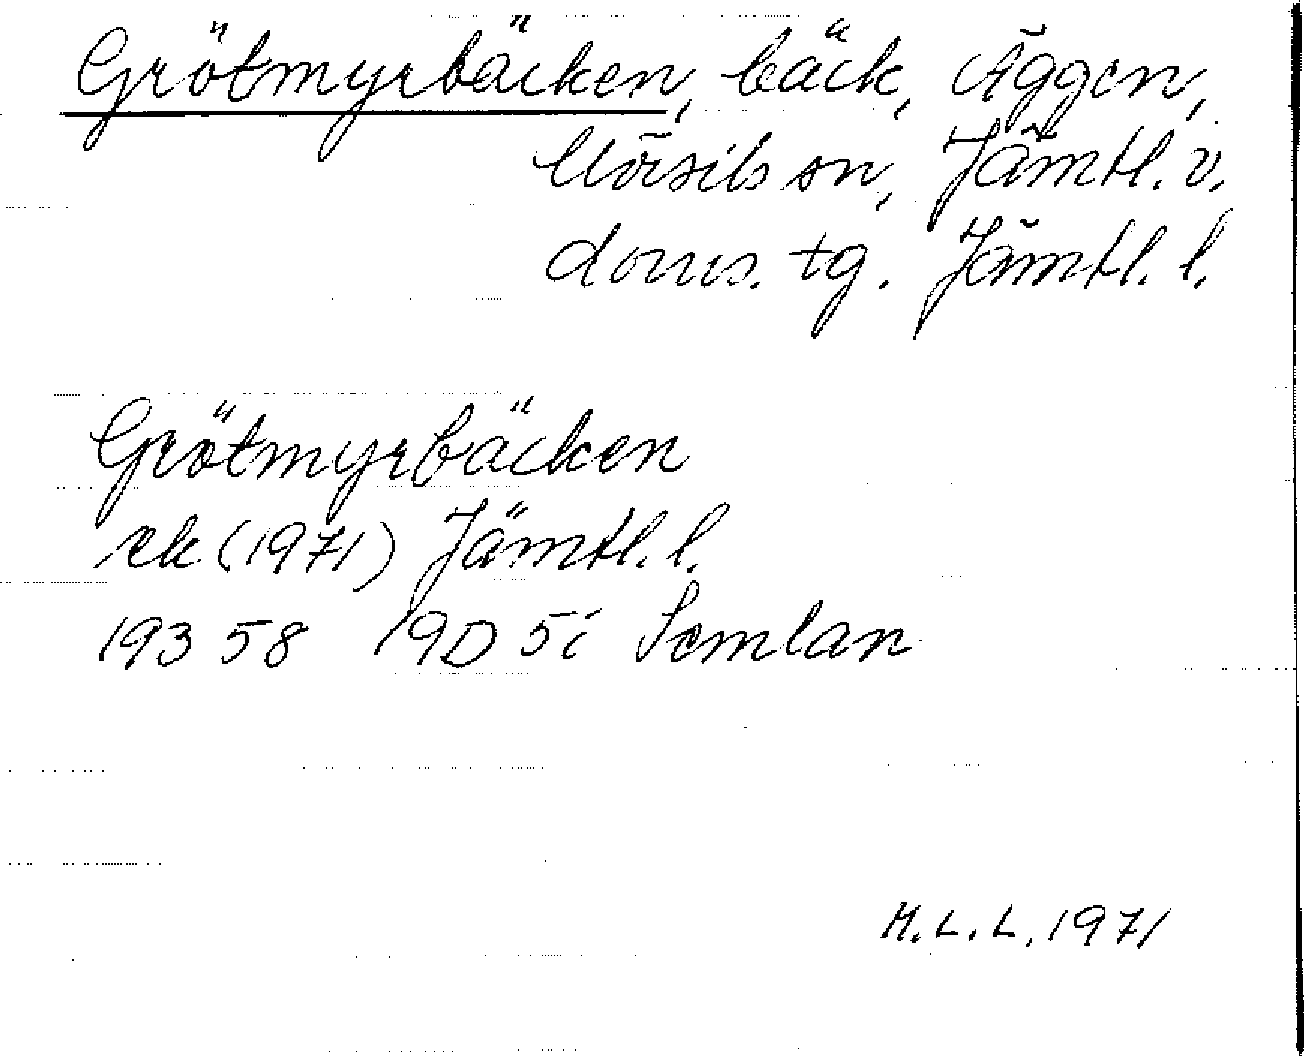 Grötmyrbäcken, bäck, Äggen,
Mörsils sn, Jämtl. v.
doms. tg. Jämtl. l.
Grötmyrbäcken
ek (1971) Jämtl. l.
193 58 19D 5i Semlan
M.L.L. 1971